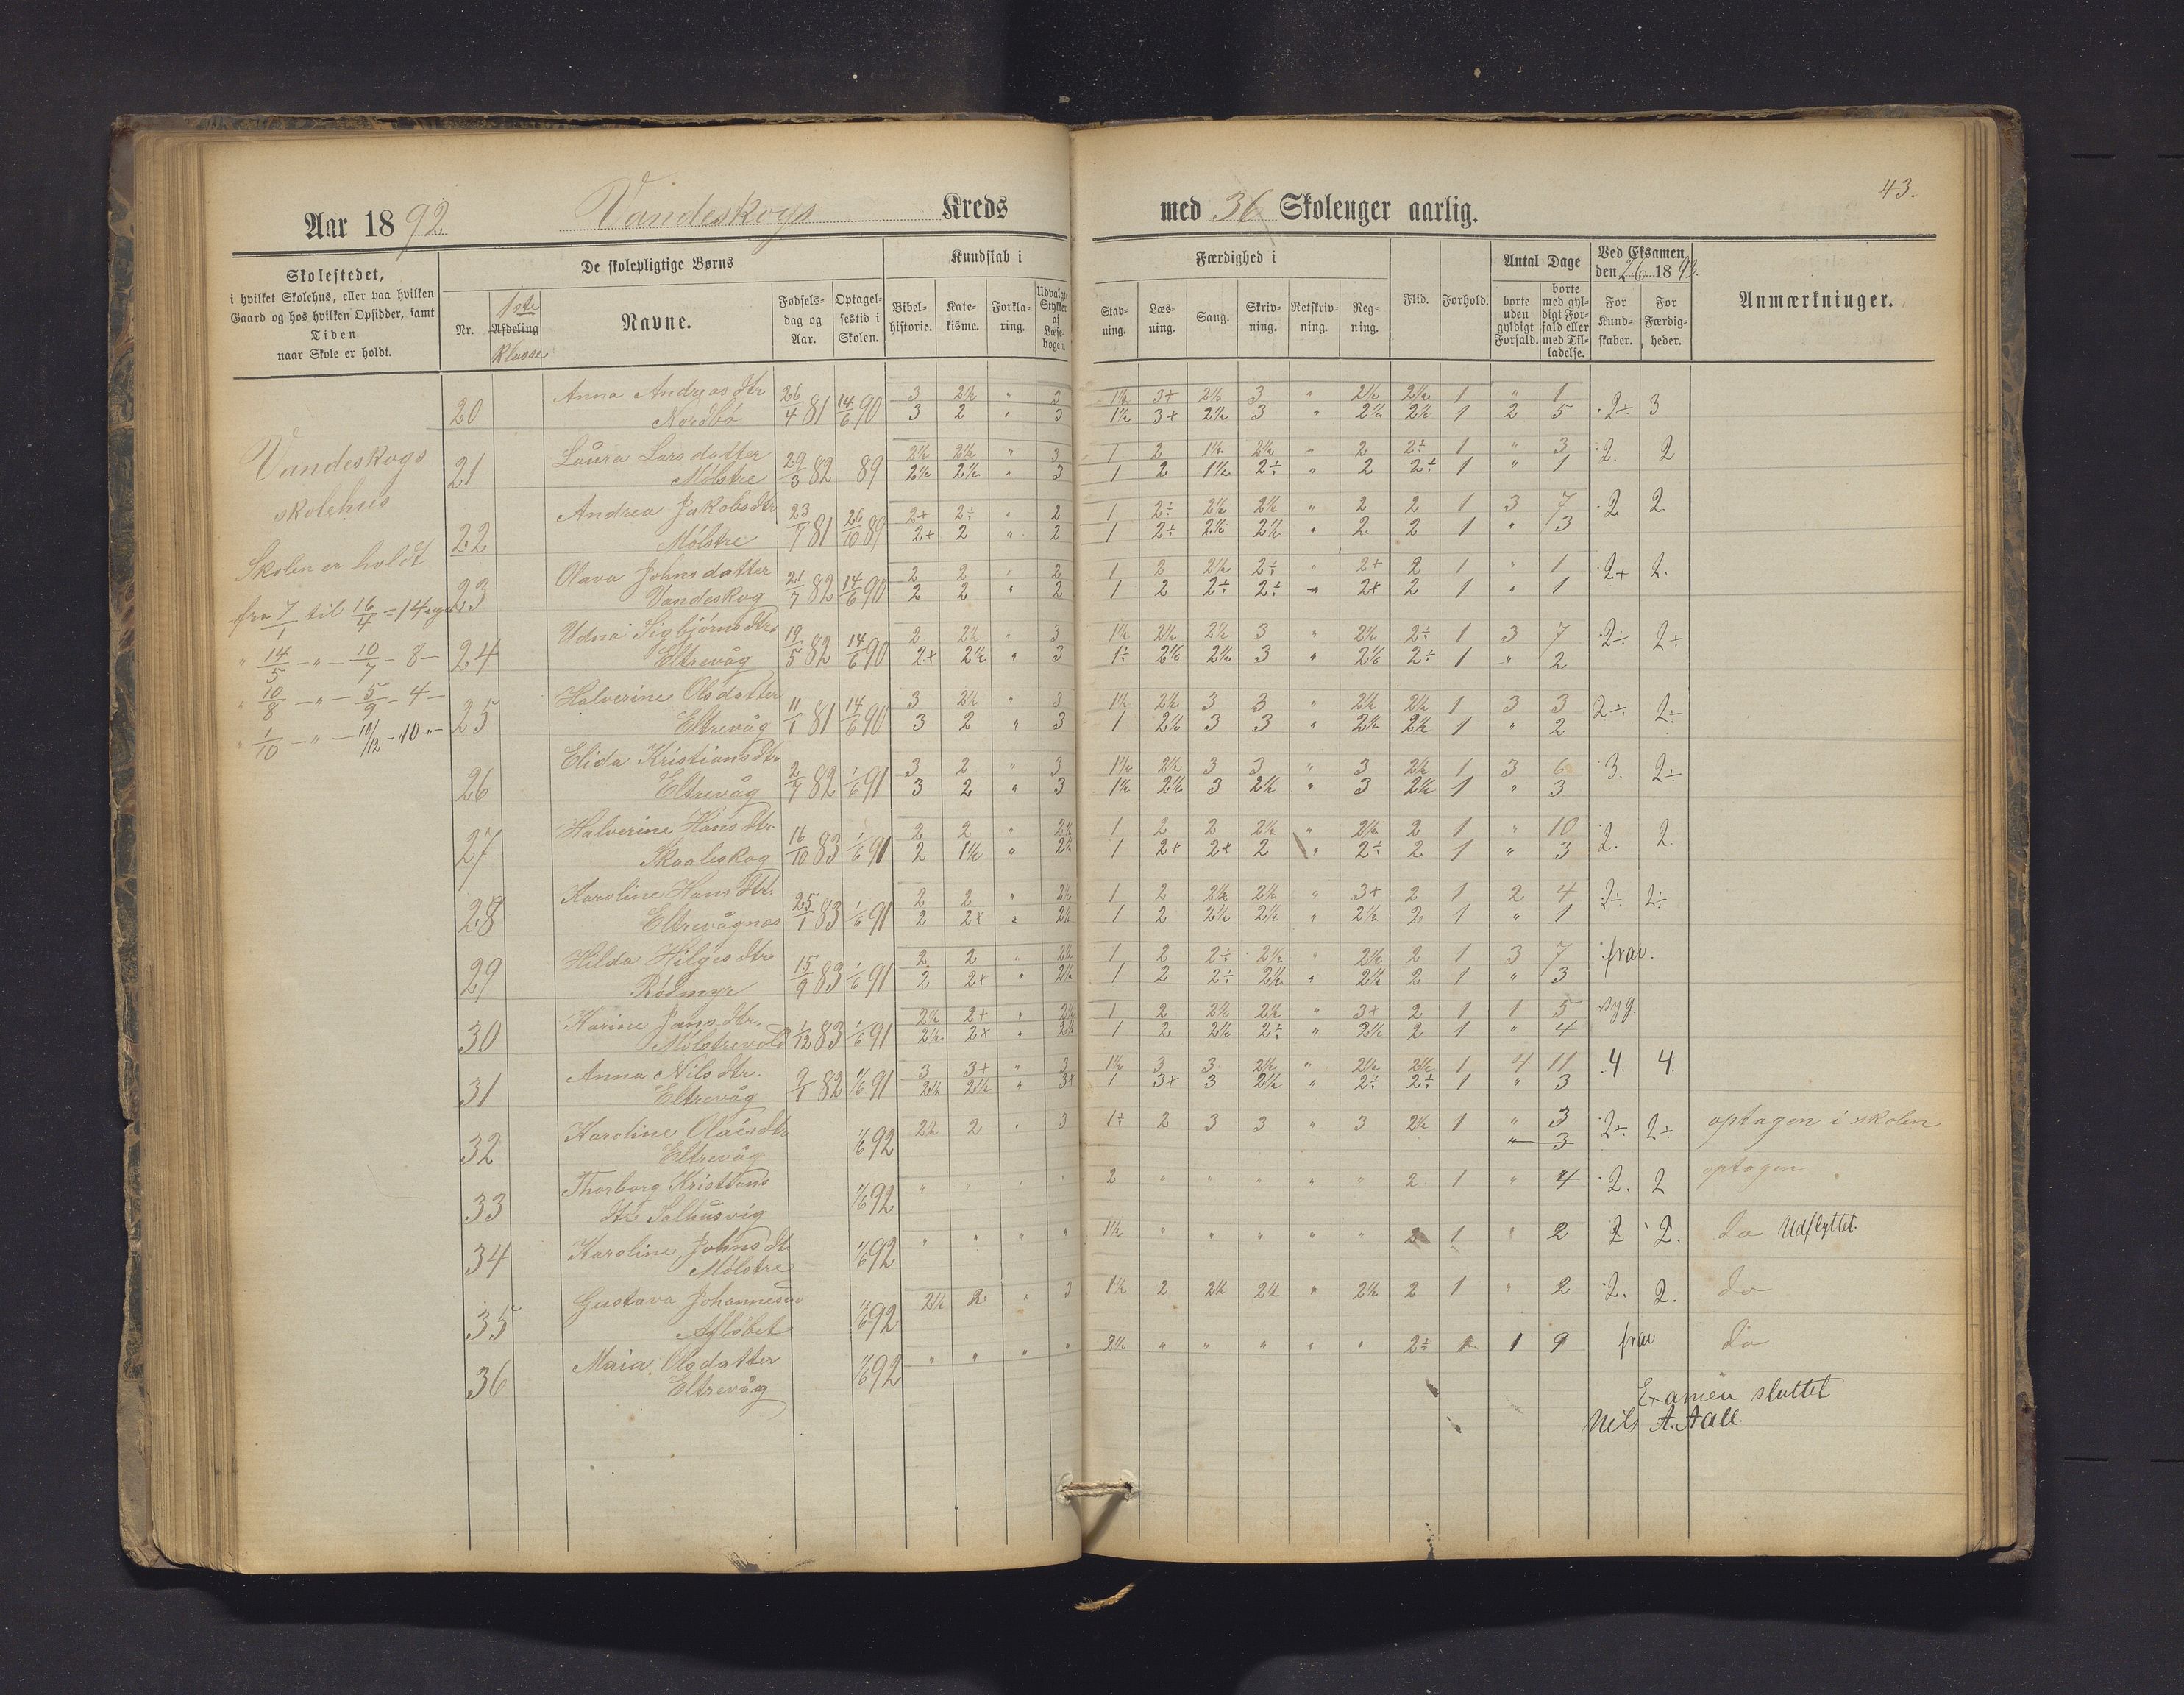 43.
Aar 1892 Vandeskogs Kreds med 36 Skoleuger aarlig.
Skolestedet,
i hvilket Skolehus, eller paa hvilken
Gaard og hos hvilken Opsidder, samt
Tiden
naar Skole er holdt.
De skolepligtige Børns
Nr.
1ste
Afdeling
Klasse
Navne.
Fødsels-
dag og
Aar.
Optagel-
sestid i
Skolen.
Kundskab i
Bibel-
historie.
Kate-
kisme.
Forkla-
ring.
Udvalgte
Stykker
af
Læse-
bogen.
Færdighed i
Stav-
ning.
Læs-
ning.
Sang.
Skriv-
ning.
Retskriv-
ning.
Reg-
ning.
Flid.
Forhold.
Antal Dage
borte
uden
gyldigt
Forfald.
borte
med gyl-
digt For-
fald eller
med Til-
ladelse.
Ved Eksamen
den 2/6 1893.
For
Kund-
skaber.
For
Færdig-
heder.
Anmærkninger.
Vandeskogs
skolehus
Skolen er holdt
fra 7/1 til 16/4 = 14 uger
" 14/5 - " - 10/7 - 8 -
" 10/8 - " - 5/9 - 4 -
" 1/10 - " - 10/12 - 10 - " -
20 Anna Andreasdtr 26/4 81 14/6 90 3 2½ " 3 1½ 3+ 2½ 3 " 2½ 2½ 1 " 1 2÷ 3
Nordbø 3 2 " 3 1½ 3+ 2½ 3 " 2½ 2½ 1 2 5
21 Laura Larsdatter 29/3 82 89 2½ 2½ " 3 1 2 1½ 2½ " 2 2÷ 1 " 3 2. 2
Mølstre 2½ 2½ " 3 1 2 1½ 2÷ " 2 2÷ 1 " 1
22 Andrea Jakobsdtr 23/7 81 26/10 89 2+ 2÷ " 2 1 2÷ 2½ 2½ " 2 2 1 3 7 2 2.
Mølstre 2+ 2 " 2 1 2÷ 2½ 2½ " 2 2 1 " 3
23 Olava Johnsdatter 21/7 82 14/6 90 2 2 " 2 1 2 2½ 2÷ " 2+ 2 1 " 1 2+ 2.
Vandeskog 2 2 " 2 1 2 2÷ 2÷ " 2+ 2 1 " 1
24 Udna Sigbjørnsdtr 19/5 82 14/6 90 2 2½ " 3 1½ 2½ 2½ 3 " 2½ 2÷ 1 3 7 2÷ 2÷
Eltrevåg 2+ 2½ " 3 1÷ 2½ 2½ 3 " 2½ 2÷ 1 " 2
25 Halverine Olsdatter 11/1 81 14/6 90 3 2½ " 3 1½ 2½ 3 3 " 2½ 2½ 1 3 3 2÷ 2÷
Eltrevåg 3 2 " 3 1 2½ 3 3 " 2½ 2½ 1 " 2
26 Elida Kristiansdtr 2/7 82 1/6 91 3 2 " 3 1½ 2½ 3 3 " 3 2½ 1 3 6 3. 2÷
Eltrevåg 3 2 " 3 1½ 2½ 3 2½ " 3 2½ 1 " 3
27 Halverine Hansdtr 16/10 83 1/6 91 2 2 " 2½ 1 2 2 2½ " 2½ 2 1 " 10 2. 2.
Skaaleskog 2 1½ " 2½ 1 2+ 2+ 2 " 2÷ 2 1 " 3
28 Karoline Hansdtr. 25/1 83 1/6 91 2 2 " 2½ 1 2 2½ 2½ " 3+ 2 1 2 4 2÷ 2÷
Eltrevågnæs 2 2+ " 2½ 1 2 2½ 2½ " 2½ 2 1 " 1
29 Hilda Hilgesdtr 15/9 83 1/6 91 2 2 " 2½ 1 2 2÷ 2½ " 2½ 2 1 3 7 frav.
Rødmyr 2 2+ " 2½ 1 2 2÷ 2½ " 2½ 2 1 " 3
30 Karine Jansdtr. 1/12 83 1/6 91 2½ 2+ " 2½ 1 2 2½ 2½ " 3+ 2 1 1 5 syg.
Mølstrevold 2½ 2+ " 2½ 1 2 2½ 2÷ " 2½ 2 1 " 4
31 Anna Nilsdtr. 9/1 82 1/6 91 3 3+ " 3 1½ 3 3 2½ " 2½ 2½ 1 4 11 4. 4.
Eltrevåg 2½ 2½ " 3+ 1 3+ 3 2½ " 2÷ 2÷ 1 " 3
32 Karoline Olaisdtr 1/6 92 2½ 2 " 3 1÷ 2 3 3 " 3 2½ 1 " 3 2÷ 2÷ optagen i skolen
Eltrevåg " 3
33 Thorborg Kristians 1/6 92 " " " " 2 " " " " " 2 1 " 4 2. 2 optagen
dtr Solhusvig
34 Karoline Johnsdt 1/6 92 " " " " 1½ " " " " " 2 1 " 2 2 2. do Udflyttet.
Mølstre
35 Gustava Johannesd 1/6 92 2½ 2 " 3 1½ 2 2½ 2½ " 2½ 2 1 " 2 2. 2. do
Afløbet
36 Maia Olsdatter 1/6 92 " " " " 2½ " " " " " 2÷ 1 1 9 frav do
Eltrevåg
Examen sluttet
Nils A. Aall.